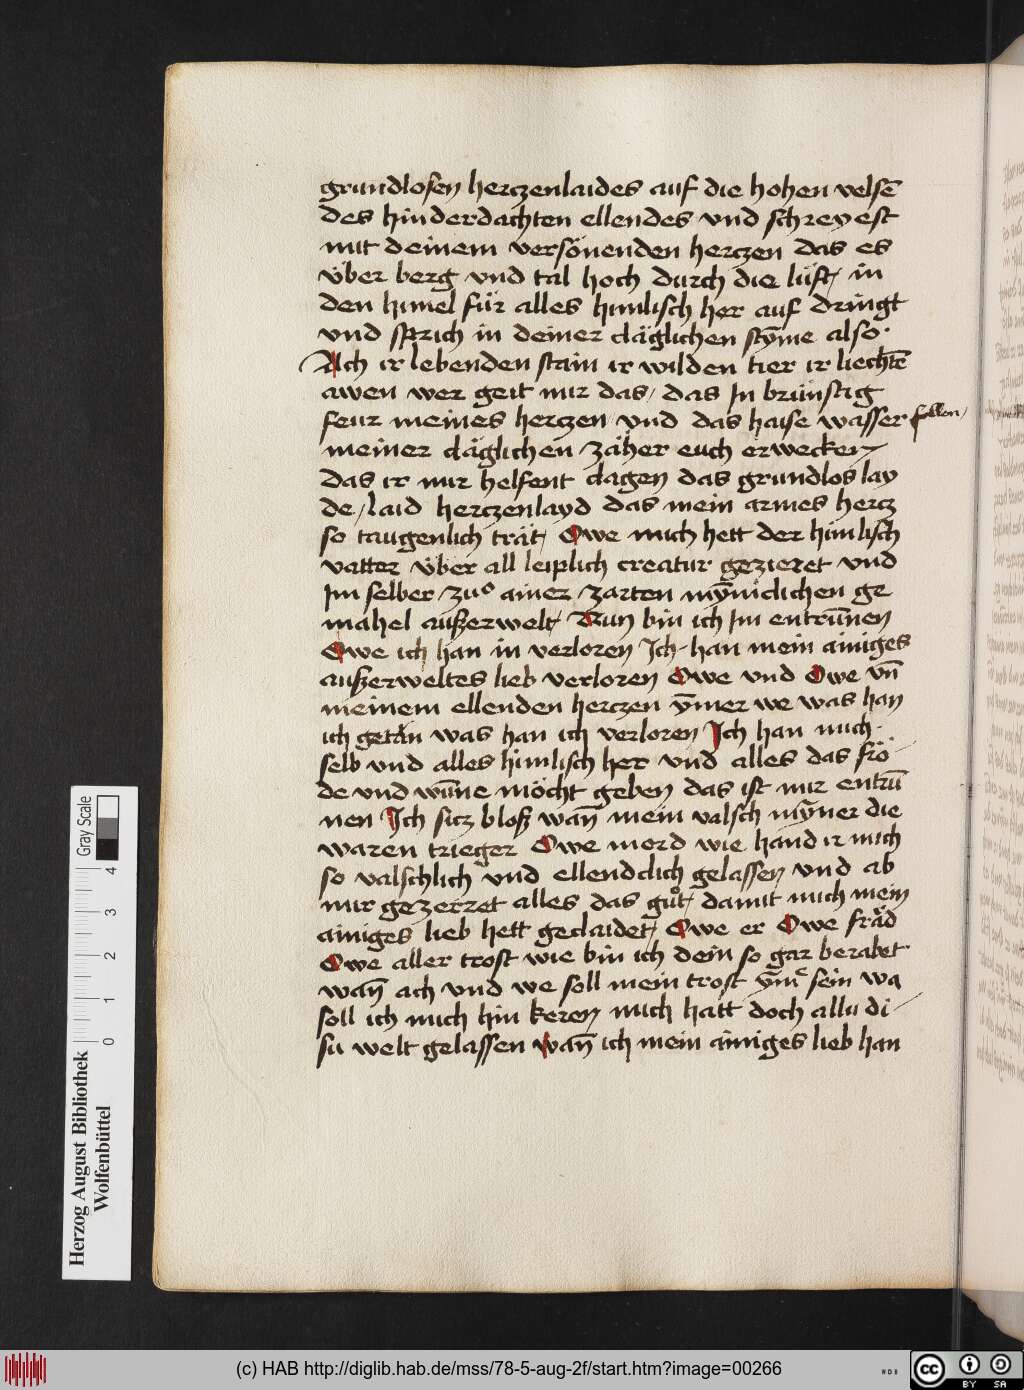 grundlosen herczenlaides auf die hohen velsē
des hinderdachten ellendes vnd schreyest
mit deinem versönenden herczen das es
über berg vnd tal hoch durch die lüft / in
den himel für alles himlisch her auf dringt
vnd sprich in deiner cläglichen stȳme also ·
Ach ir lebenden stain ir wilden tier ir liechtē
awen wer geit mir das / das In brünstig
feur meines herczen vnd das haise wasser follen /
meiner cläglichen zäher euch erwecken
das ir mir helfent clagen das grundlos lay
de / laid herczenlayd das mein armes hercz
so taugenlich trät / Owe mich hett der himlisch
vatter über all leiplich creatur gezieret vnd
Im selber zuͦ ainer zarten mȳniclichen ge
mahel außerwelt / Nun bin ich Im entrūnen
Owe ich han in verloren Ich han mein ainiges
außerweltes lieb verloren Owe vnd Owe vn̄
meinem ellenden herczen ȳmer we was han
ich getän was han ich verloren Ich han mich
selb vnd alles himlisch her vnd alles das frö
de vnd wūne möcht geben das ist mir entrū
nen Ich sicz bloß wan̄ mein valsch mȳner die
waren trieger Owe mord wie hand ir mich
so valschlich vnd ellendclich gelassen vnd ab
mir gezerret alles das guͦt / damit mich mein
ainiges lieb hett geclaidet / Owe er Owe fräd
Owe aller trost wie bin ich dein so gar berabet
wan̄ ach vnd we soll mein trost ȳmͬ sein wa
soll ich mich hin keren mich hatt doch allu di
su welt gelassen wan̄ ich mein ainiges lieb han
Herzog August Bibliothek
Wolfenbüttel
Gray Scale
0 1 2 3 4
(c) HAB http://diglib.hab.de/mss/78-5-aug-2f/start.htm?image=00266
WDB
cc BY SA